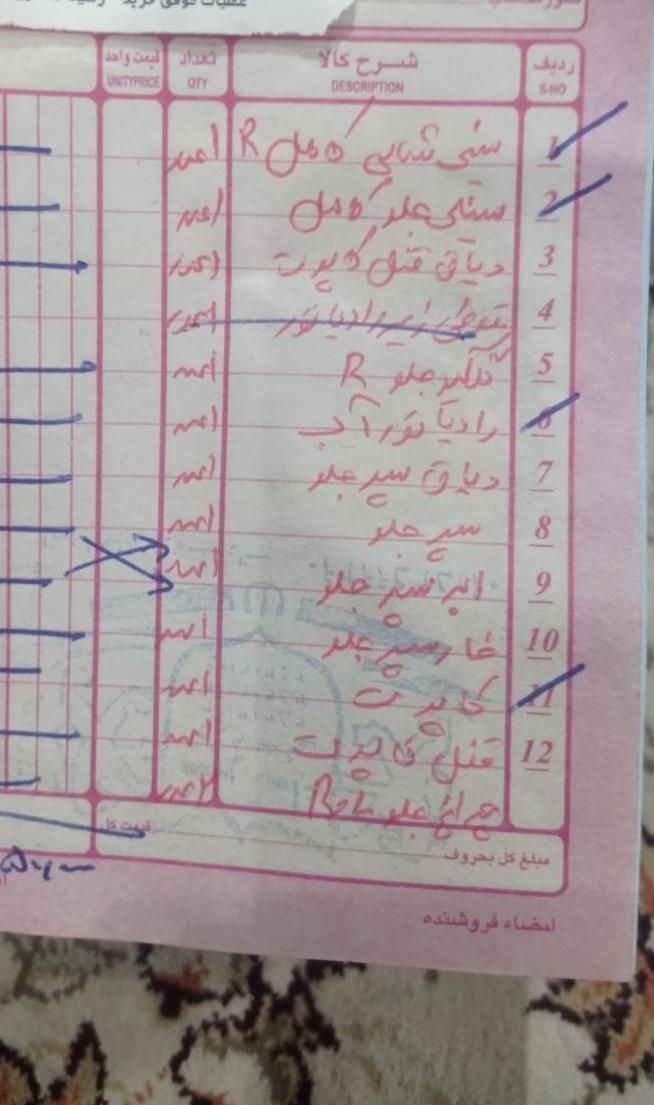 شرح کالا تعداد قیمت واحد ردیف
DESCRIPTION QTY UNITYPRICE S-NO
1 سینی شتابی کامل R ۱عدد
2 سینی جلو کامل ۱عدد
3 دیاق قفل کاپوت ۱عدد
4 رادیاتور ۱عدد
5 گلگیر جلو R ۱عدد
6 رادیاتور آب ۱عدد
7 دیاق سپر جلو ۱عدد
8 سپر جلو ۱عدد
9 ابر سپر جلو ۱عدد
10 خار سپر جلو ۱عدد
11 کاپوت ۱عدد
12 قفل کاپوت ۱عدد
چراغ جلو ۲عدد
قیمت کل
مبلغ کل بحروف
امضاء فروشنده